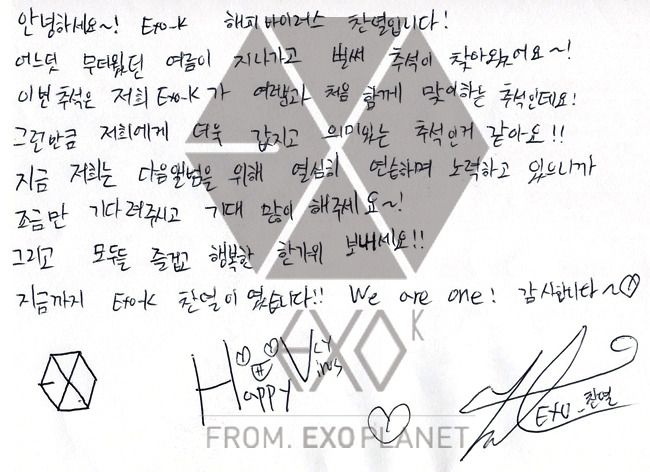 안녕하세요~! Exo-K 해피바이러스 찬열입니다!
어느덧 무더웠던 여름이 지나가고 벌써 추석이 찾아왔어요~!
이번 추석은 저희 Exo-K가 여러분과 처음 함께 맞이하는 추석인데요!
그런만큼 저희에게 더욱 값지고 의미있는 추석인거 같아요!!
지금 저희는 다음앨범을 위해 열심히 연습하며 노력하고 있으니까
조금만 기다려주시고 기대 많이 해주세요~!
그리고 모두들 즐겁고 행복한 한가위 보내세요!!
지금까지 Exo-K 찬열이였습니다!! We are one! 감사합니다~♡
EXO K
Happy Virus
EXO_찬열
FROM. EXOPLANET